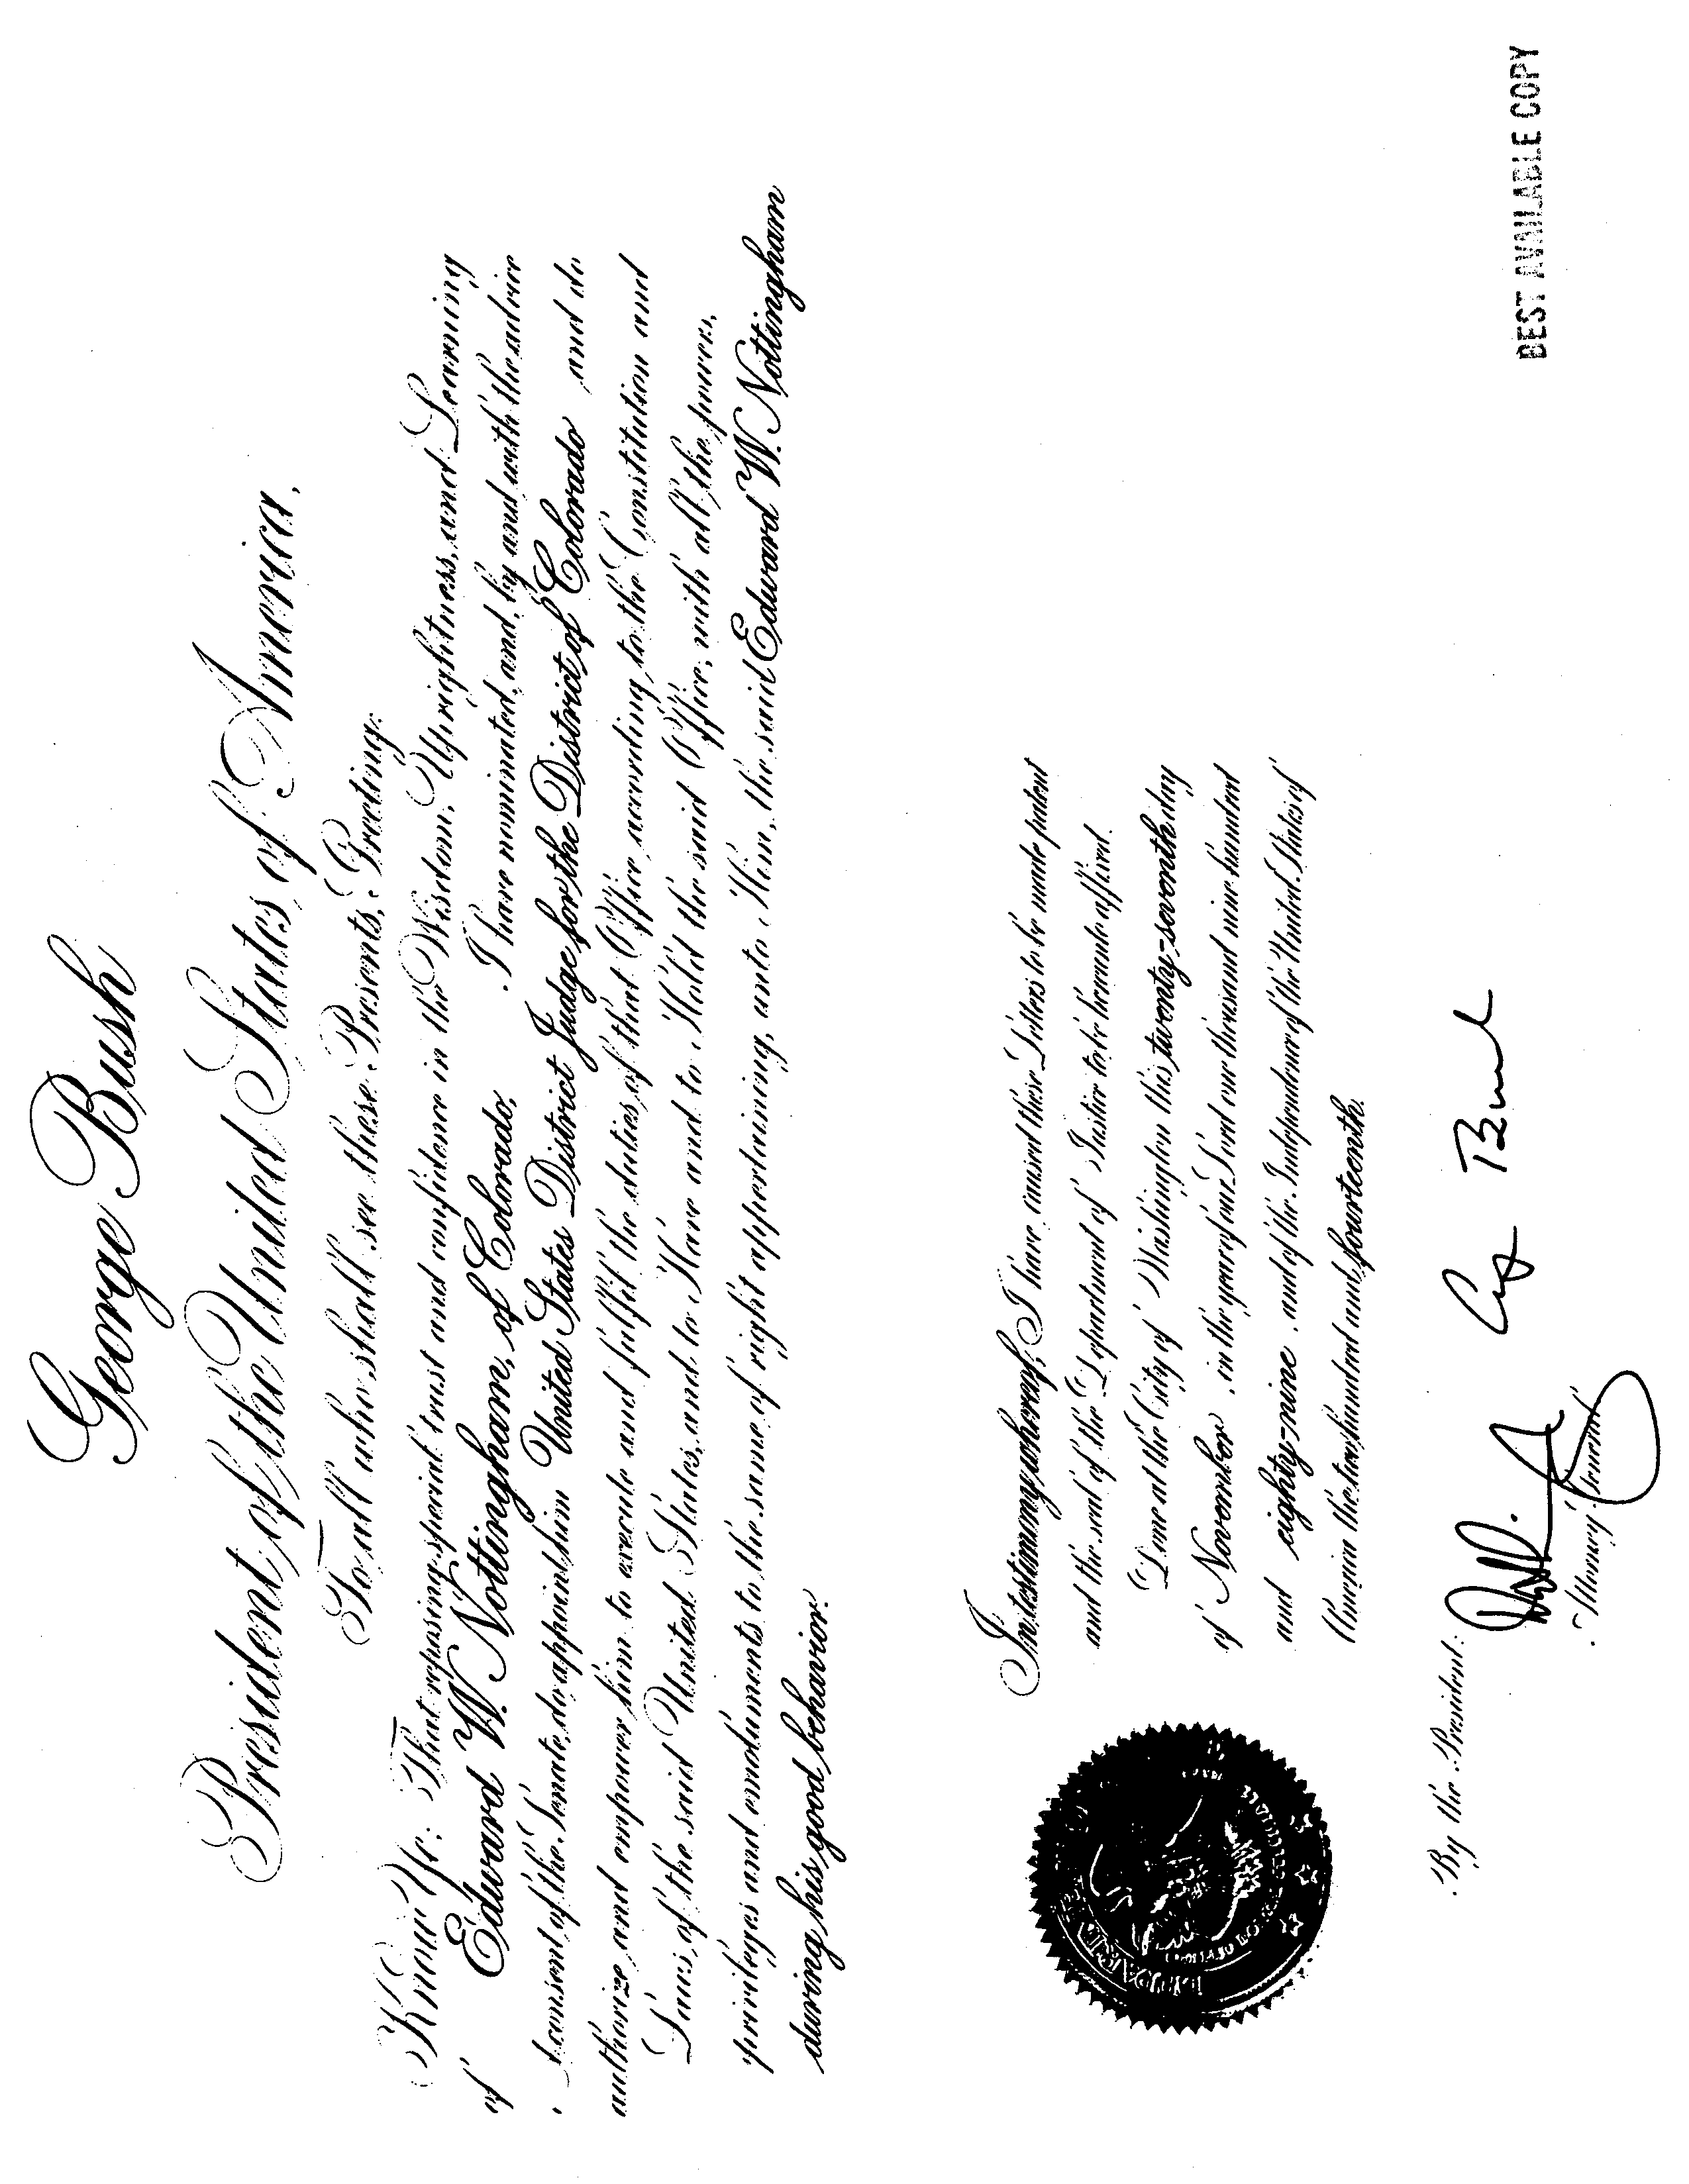 George Bush
President of the United States of America,
To all who shall see these Presents, Greeting:
Know Ye: That reposing special trust and confidence in the Wisdom, Uprightness, and Learning
of Edward W. Nottingham, of Colorado, I have nominated, and, by and with the advice
consent of the Senate, do appoint him United States District Judge for the District of Colorado and do
authorize and empower him to execute and fulfil the duties of that Office according to the Constitution and
Laws of the said United States, and to Have and to Hold the said Office, with all the powers,
privileges and emoluments to the same of right appertaining, unto Him, the said Edward W. Nottingham
during his good behavior.
In testimony whereof, I have caused these Letters to be made patent
and the seal of the Department of Justice to be hereunto affixed.
Done at the City of Washington this twenty-seventh day
of November, in the year of our Lord one thousand nine hundred
and eighty-nine, and of the Independence of the United States of
America the two hundred and fourteenth.
By the President:
Attorney General
BEST AVAILABLE COPY